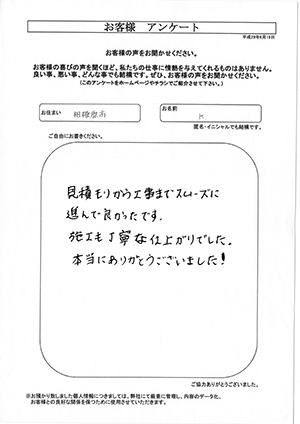 お客様　アンケート
平成29年6月19日
お客様の声をお聞かせください。
お客様の喜びの声を聞くほど、私たちの仕事に情熱を与えてくれるものはありません。
良い事、悪い事、どんな事でも結構です。ぜひ、お客様の声をお聞かせください。
(このアンケートをホームページやチラシでご紹介させて下さい。)
お住まい
相模原市
お名前
K
匿名・イニシャルでも結構です。
ご自由にお書きください。
見積もりから工事までスムーズに
進んで良かったです。
施工も丁寧な仕上がりでした。
本当にありがとうございました!
ご協力ありがとうございました。
※お預かり致しました個人情報につきましては、弊社にて厳重に管理し、内容のデータ化、
お客様との良好な関係を保つために使用させていただきます。